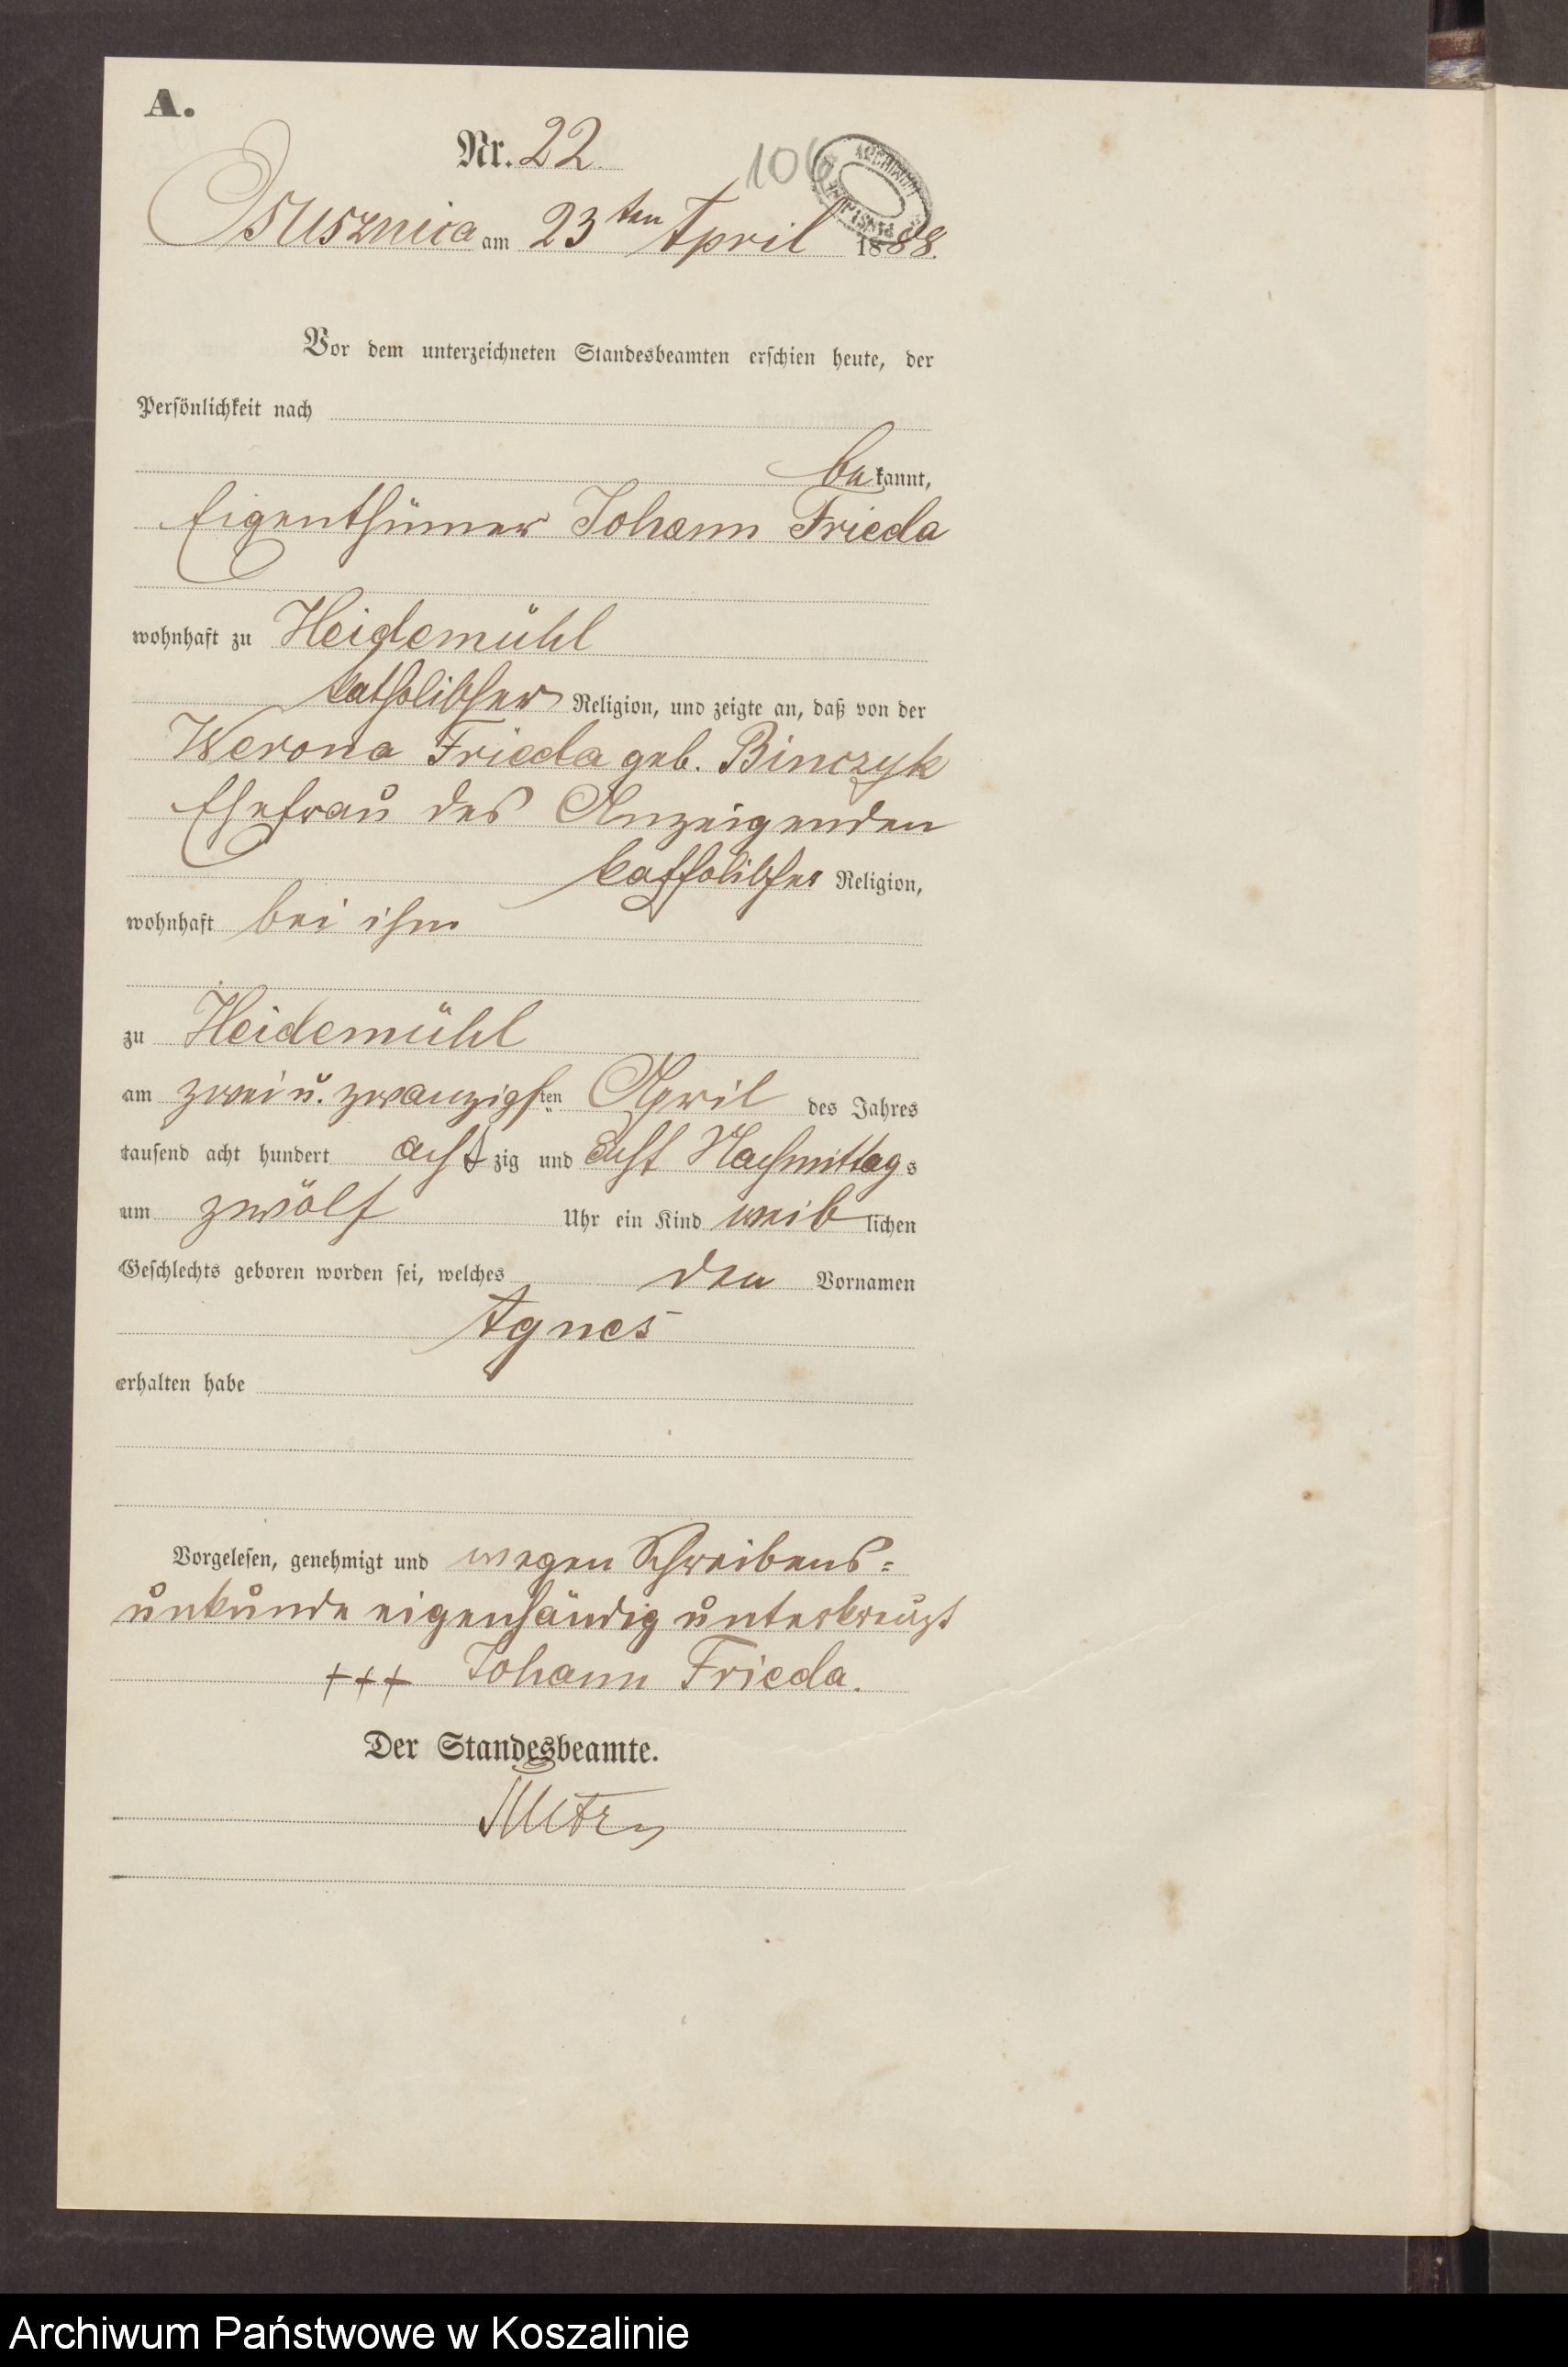 A.
Nr. 22
106
ARCHIWUM
Osusznica am 23ten April 1888.
Vor dem unterzeichneten Standesbeamten erschien heute, der
Persönlichkeit nach
bekannt,
Eigenthümer Johann Frieda
wohnhaft zu Heidemühl
katholischer Religion, und zeigte an, daß von der
Werona Frieda geb. Binczyk
Ehefrau des Anzeigenden
katholischer Religion,
wohnhaft bei ihm
zu Heidemühl
am zwei u. zwanzigsten April des Jahres
tausend acht hundert achtzig und acht Nachmittags
um zwölf Uhr ein Kind weiblichen
Geschlechts geboren worden sei, welches den Vornamen
Agnes
erhalten habe
Vorgelesen, genehmigt und wegen Schreibens=
unkunde eigenhändig unterkreuzt
+++ Johann Frieda.
Der Standesbeamte.
Archiwum Państwowe w Koszalinie